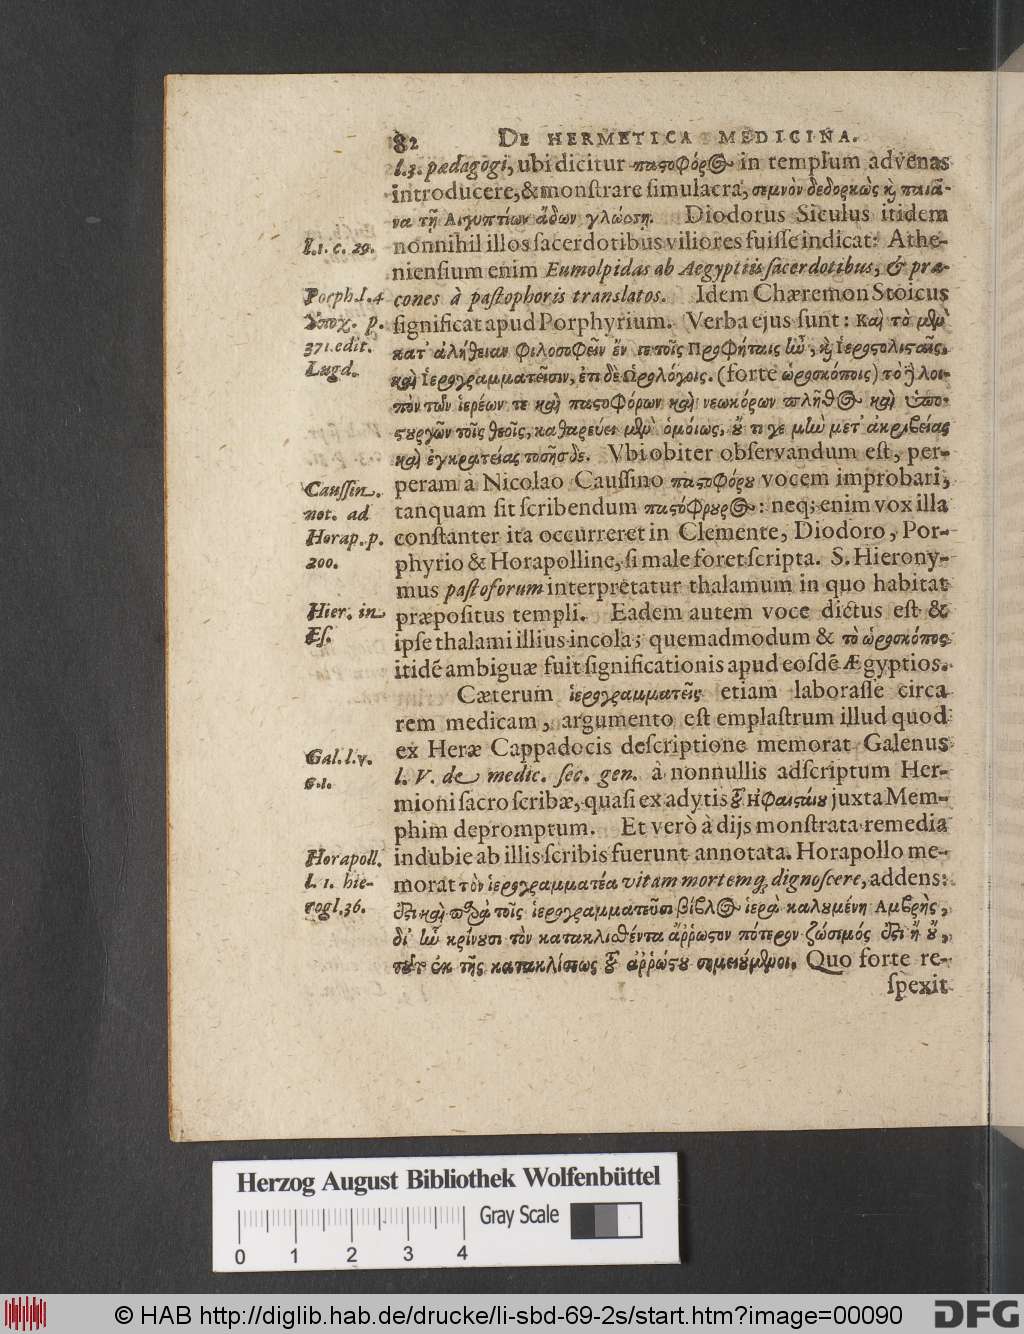 82 DE HERMETICA MEDICINA.
l. 3. pædagogi, ubi dicitur παστοφόρος in templum advenas
introducere, & monſtrare ſimulacra, σεμνὸν δεδορκὼς καὶ παιᾶ-
να τῇ Αἰγυπτίων ᾄδων γλώσσῃ. Diodorus Siculus itidem
l. 1. c. 29.
nonnihil illos ſacerdotibus viliores fuiſſe indicat: Athe-
nienſium enim Eumolpidas ab Aegyptiis ſacerdotibus, & præ-
Porph. l. 4
cones à paſtophoris translatos. Idem Chæremon Stoicus
ἀποχ. p.
ſignificat apud Porphyrium. Verba ejus ſunt: Καὶ τὸ μὲν
371. edit.
κατ' ἀλήθειαν φιλοσοφεῖν ἔν τε τοῖς Προφήταις ἦν, καὶ Ἱεροστολισταῖς,
Lugd.
καὶ Ἱερογραμματεῦσιν, ἔτι δὲ Ὡρολόγοις. (forte ὡροσκόποις) τὸ δὲ λοι-
πὸν τῶν ἱερέων τε καὶ παστοφόρων καὶ νεωκόρων πλῆθος καὶ ὑπο-
στουργῶν τοῖς θεοῖς, καθαρεύει μὲν ὁμοίως, οὔ τι γε μὴν μετ' ἀκριβείας
καὶ ἐγκρατείας τοσῆσδε. Vbi obiter obſervandum eſt, per-
Cauſſin.
peram à Nicolao Cauſſino παστοφόρου vocem improbari,
not. ad
tanquam ſit ſcribendum παστόφρουρος: neq; enim vox illa
Horap. p.
conſtanter ita occurreret in Clemente, Diodoro, Por-
200.
phyrio & Horapolline, ſi male foret ſcripta. S. Hierony-
mus paſtoforum interpretatur thalamum in quo habitat
Hier. in
præpoſitus templi. Eadem autem voce dictus eſt &
Eſ.
ipſe thalami illius incola; quemadmodum & τὸ ὡροσκόπος
itidē ambiguæ fuit ſignificationis apud eoſdē Ægyptios.
Cæterum ἱερογραμματεῖς etiam laboraſſe circa
rem medicam, argumento eſt emplaſtrum illud quod
Gal. l. v.
ex Heræ Cappadocis deſcriptione memorat Galenus
c. 1.
l. V. de medic. ſec. gen. à nonnullis adſcriptum Her-
mioni ſacro ſcribæ, quaſi ex adytis τοῦ Ηφαιστείου juxta Mem-
phim depromptum. Et verò à dijs monſtrata remedia
Horapoll.
indubie ab illis ſcribis fuerunt annotata. Horapollo me-
l. 1. hie-
morat τὸν ἱερογραμματέα vitam mortemq; dignoſcere, addens:
rogl. 36.
ἔστι καὶ παρὰ τοῖς ἱερογραμματεῦσι βίβλος ἱερὰ καλουμένη Αμβρὴς,
δι' ἧς κρίνουσι τὸν κατακλιθέντα ἄῤῥωστον πότερον ζώσιμός ἐστι ἢ οὔ,
τοῦτ' ἐκ τῆς κατακλίσεως τοῦ ἀῤῥώστου σημειούμενοι. Quo forte re-
ſpexit
Herzog August Bibliothek Wolfenbüttel
Gray Scale
0 1 2 3 4
© HAB http://diglib.hab.de/drucke/li-sbd-69-2s/start.htm?image=00090
DFG